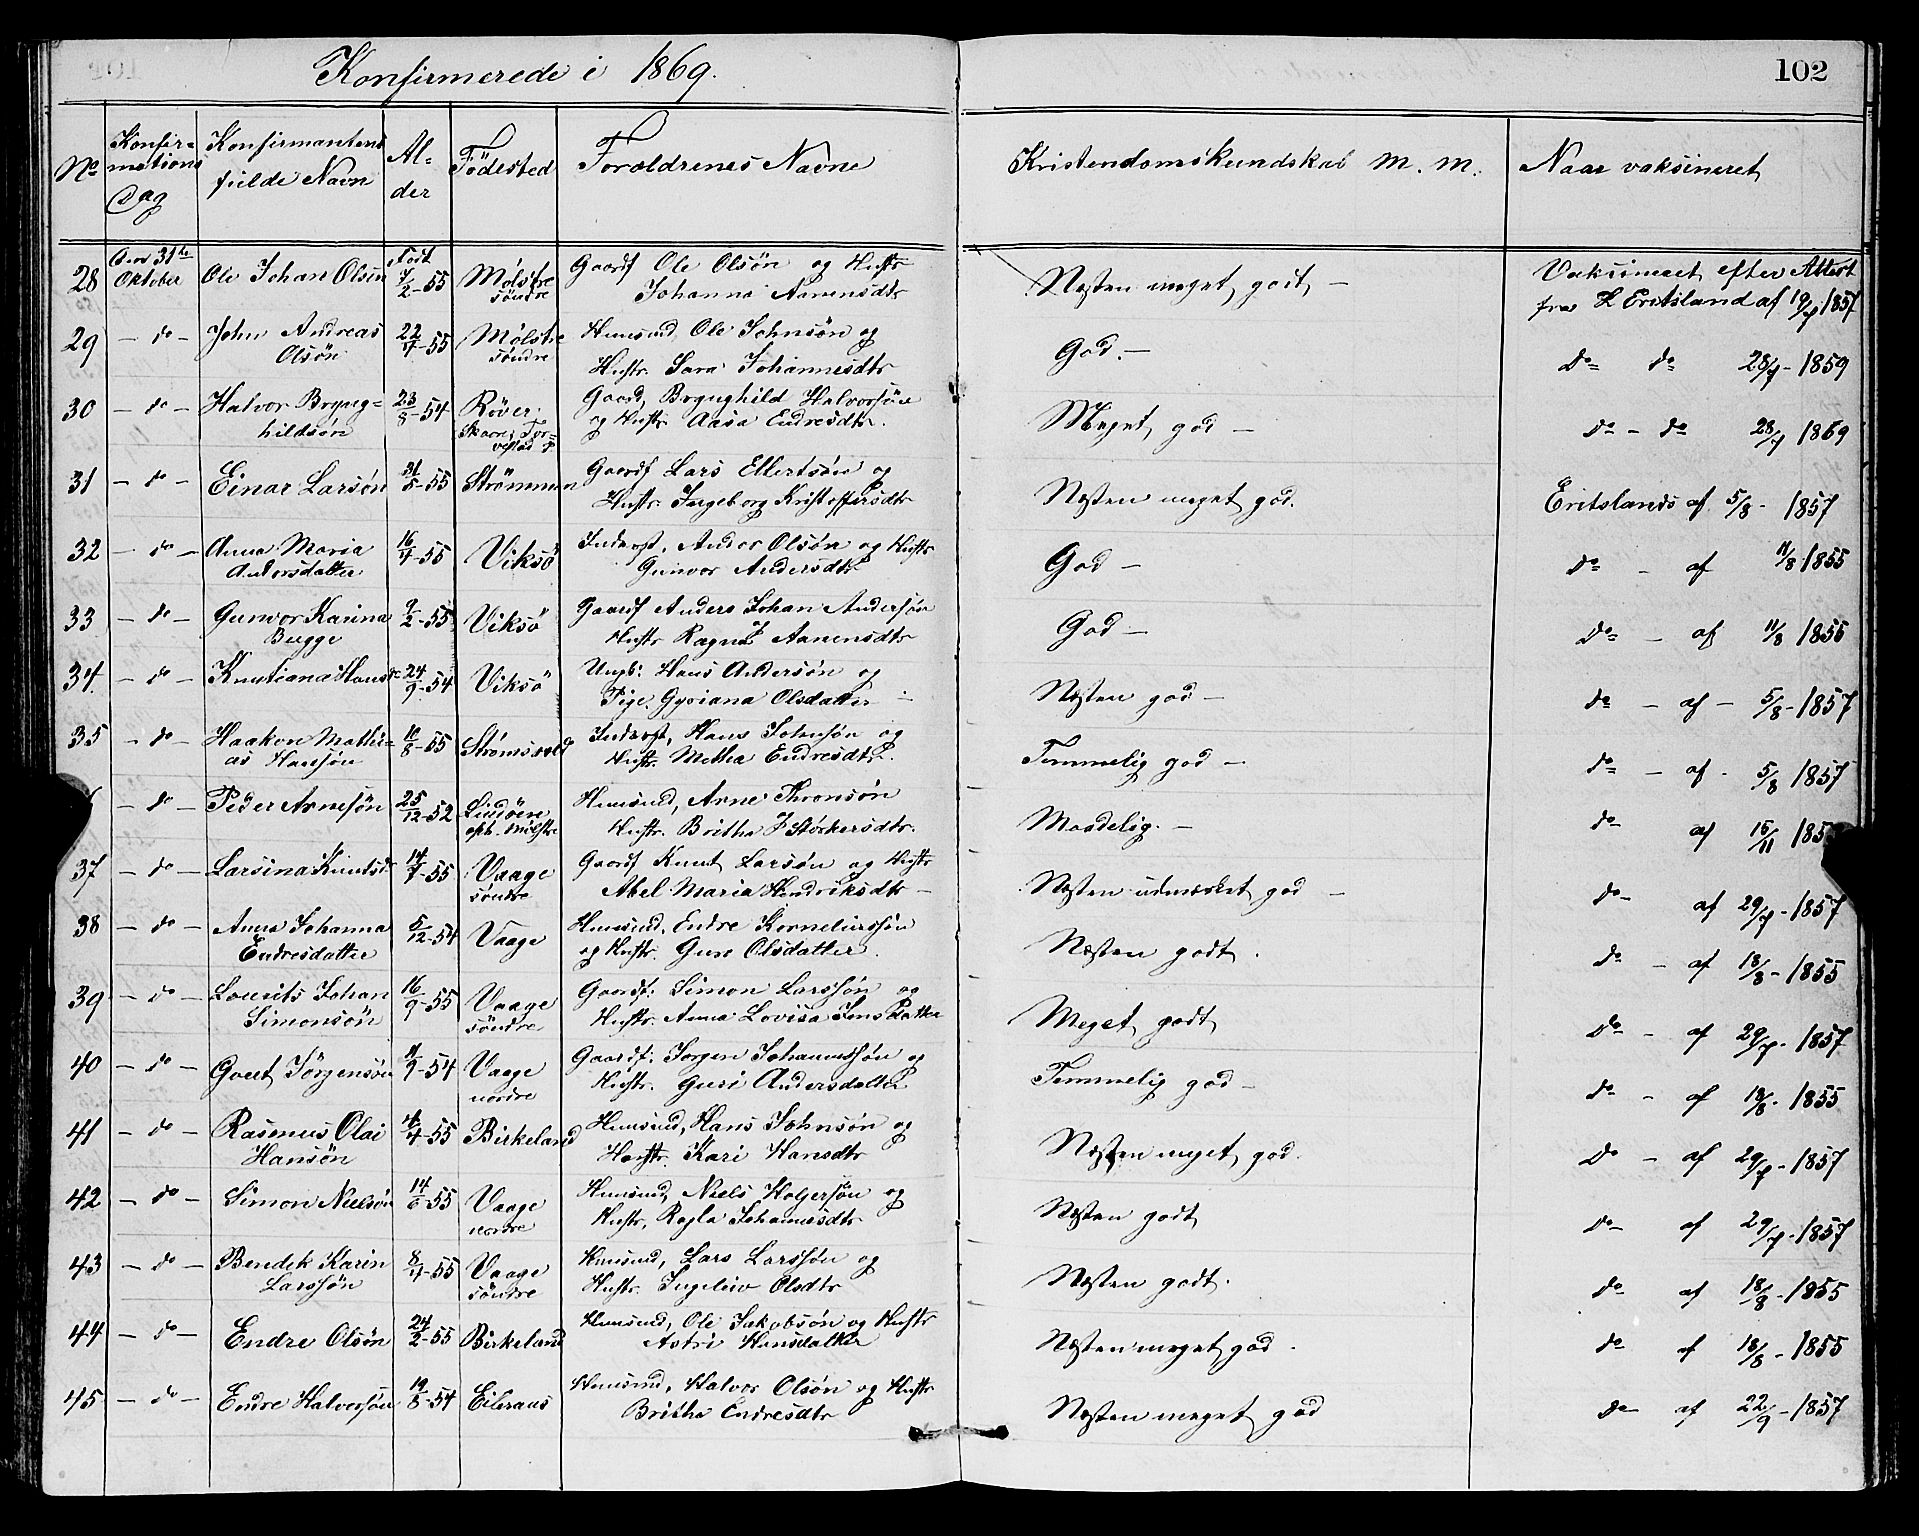 Konfirmerede i 1869.
102
No
Konfir-
mations
Dag
Konfirmantens
fulde Navn
Al-
der
Födested
Forældrenes Navne
Kristendomskundskab m. m.
Naar vaksineret
28 Den 31te Oktober Ole Johan Olsen Född 7/2-55 Mölstre söndre Gaardf Ole Olsön og Hustr
Johanna Aanensdtr Næsten meget godt - Vaksineret efter Attest
fra L Eritsland af 19/7 1857
29 - do - John Andreas Olsön 22/7-55 Mölstre söndre Huusmd, Ole Johnsön og
Hustr. Sara Johannesdtr God - do do 28/7-1859
30 - do - Halvor Bryng-
hildsön 23/8-54 Röver Skaare, Tor-
vestad P. Gaard, Brynghild Halvorsön
og Hustr. Aasa Endresdtr. Meget god - do - do 28/7 1869
31 - do - Einar Larsön 31/5-55 Strömmen Gaardf Lars Ellertsön og
Hustr. Ingeborg Kristoffersdtr Næsten meget god. Eritslands af 5/8 - 1857
32 - do - Anna Maria
Andorsdatter 16/7-55 Viksö Inderst, Andor Olsön og Hustr
Gunvor Andersdtr God - do - af 11/8 1855
33 - do - Gunvor Karina
Bugge 9/2-55 Viksö Gaardf Anders Johan Andersön
Hustr Ragna J Aanensdtr God - do - af 11/8 1855
34. - do - Knutiana Hansdr 24/9-54 Viksö Ungk: Hans Andersön og
Pige. Gyriana Olsdatter - Næsten god - do - af - 5/8-1857
35 - do - Haakon Mathi-
as Hansön 10/8-55 Strömsvold Inderst, Hans Johnsön og
Hustr. Metha Endresdtr. Temmelig god - do - af - 5/8 1857
- do - Peder Arnesön 25/12-52 Lindöen
oph. Mölstre Huusmd, Arne Thronsön
Hustr. Britha J Störkersdtr. Maadelig. - do af 15/11 185
37 - do - Larsina Knutsdr 14/7-55 Vaage
söndre Gaardf Knut Larsön og Hustr
Abel Maria Hendriksdtr - Næsten udmærket god - do - af 29/7-1857
38 - do - Anna Johanna
Endresdatter 5/12-54 Vaage Huusmd, Endre Korneliussön
og Hustr. Guro Olsdatter. Næsten godt. do - af 18/8-1855
39 - do - Lourits Johan
Simonsön 16/9-55 Vaage
söndre Gaardf: Simon Larssön og
Hustr. Anna Lovisa Jens Datter Meget godt do - af 29/7-1857
40 - do - Goert Jörgensön 11/9-54 Vaage
nordre Gaardf: Jörgen Johannessön og
Hustr. Guri Andersdatter Temmelig god - do - af 18/8-1855
41 - do - Rasmus Olai
Hansön 16/4-55 Birkeland Huusmd, Hans Johnsön og
Hustr. Kari Hansdtr Næsten meget god. do - af 29/7-1857
42 - do - Simon Nielsön 14/6-55 Vaage
nordre Huusmd, Niels Holgersön og
Hustr, Ragla Johannesdtr Næsten godt do - af 29/7-1857
43 - do - Bendik Karin
Larssön 8/4-55 Vaage
söndre Huusmd, Lars Larssön og
Hustr. Ingeleiv Olsdtr Næsten godt. do - af 18/8-1855
44 - do - Endre Olsön 24/2-55 Birkeland Huusmd, Ole Jakobsön og Hustr
Astri Hansdatter Næsten meget god. do - af 18/8-1855
45 - do - Endre Halvorsön 19/8-54 Eileraas Huusmd, Halvor Olsön og Hustr
Britha Endresdtr Næsten meget god do - af 22/9-1857